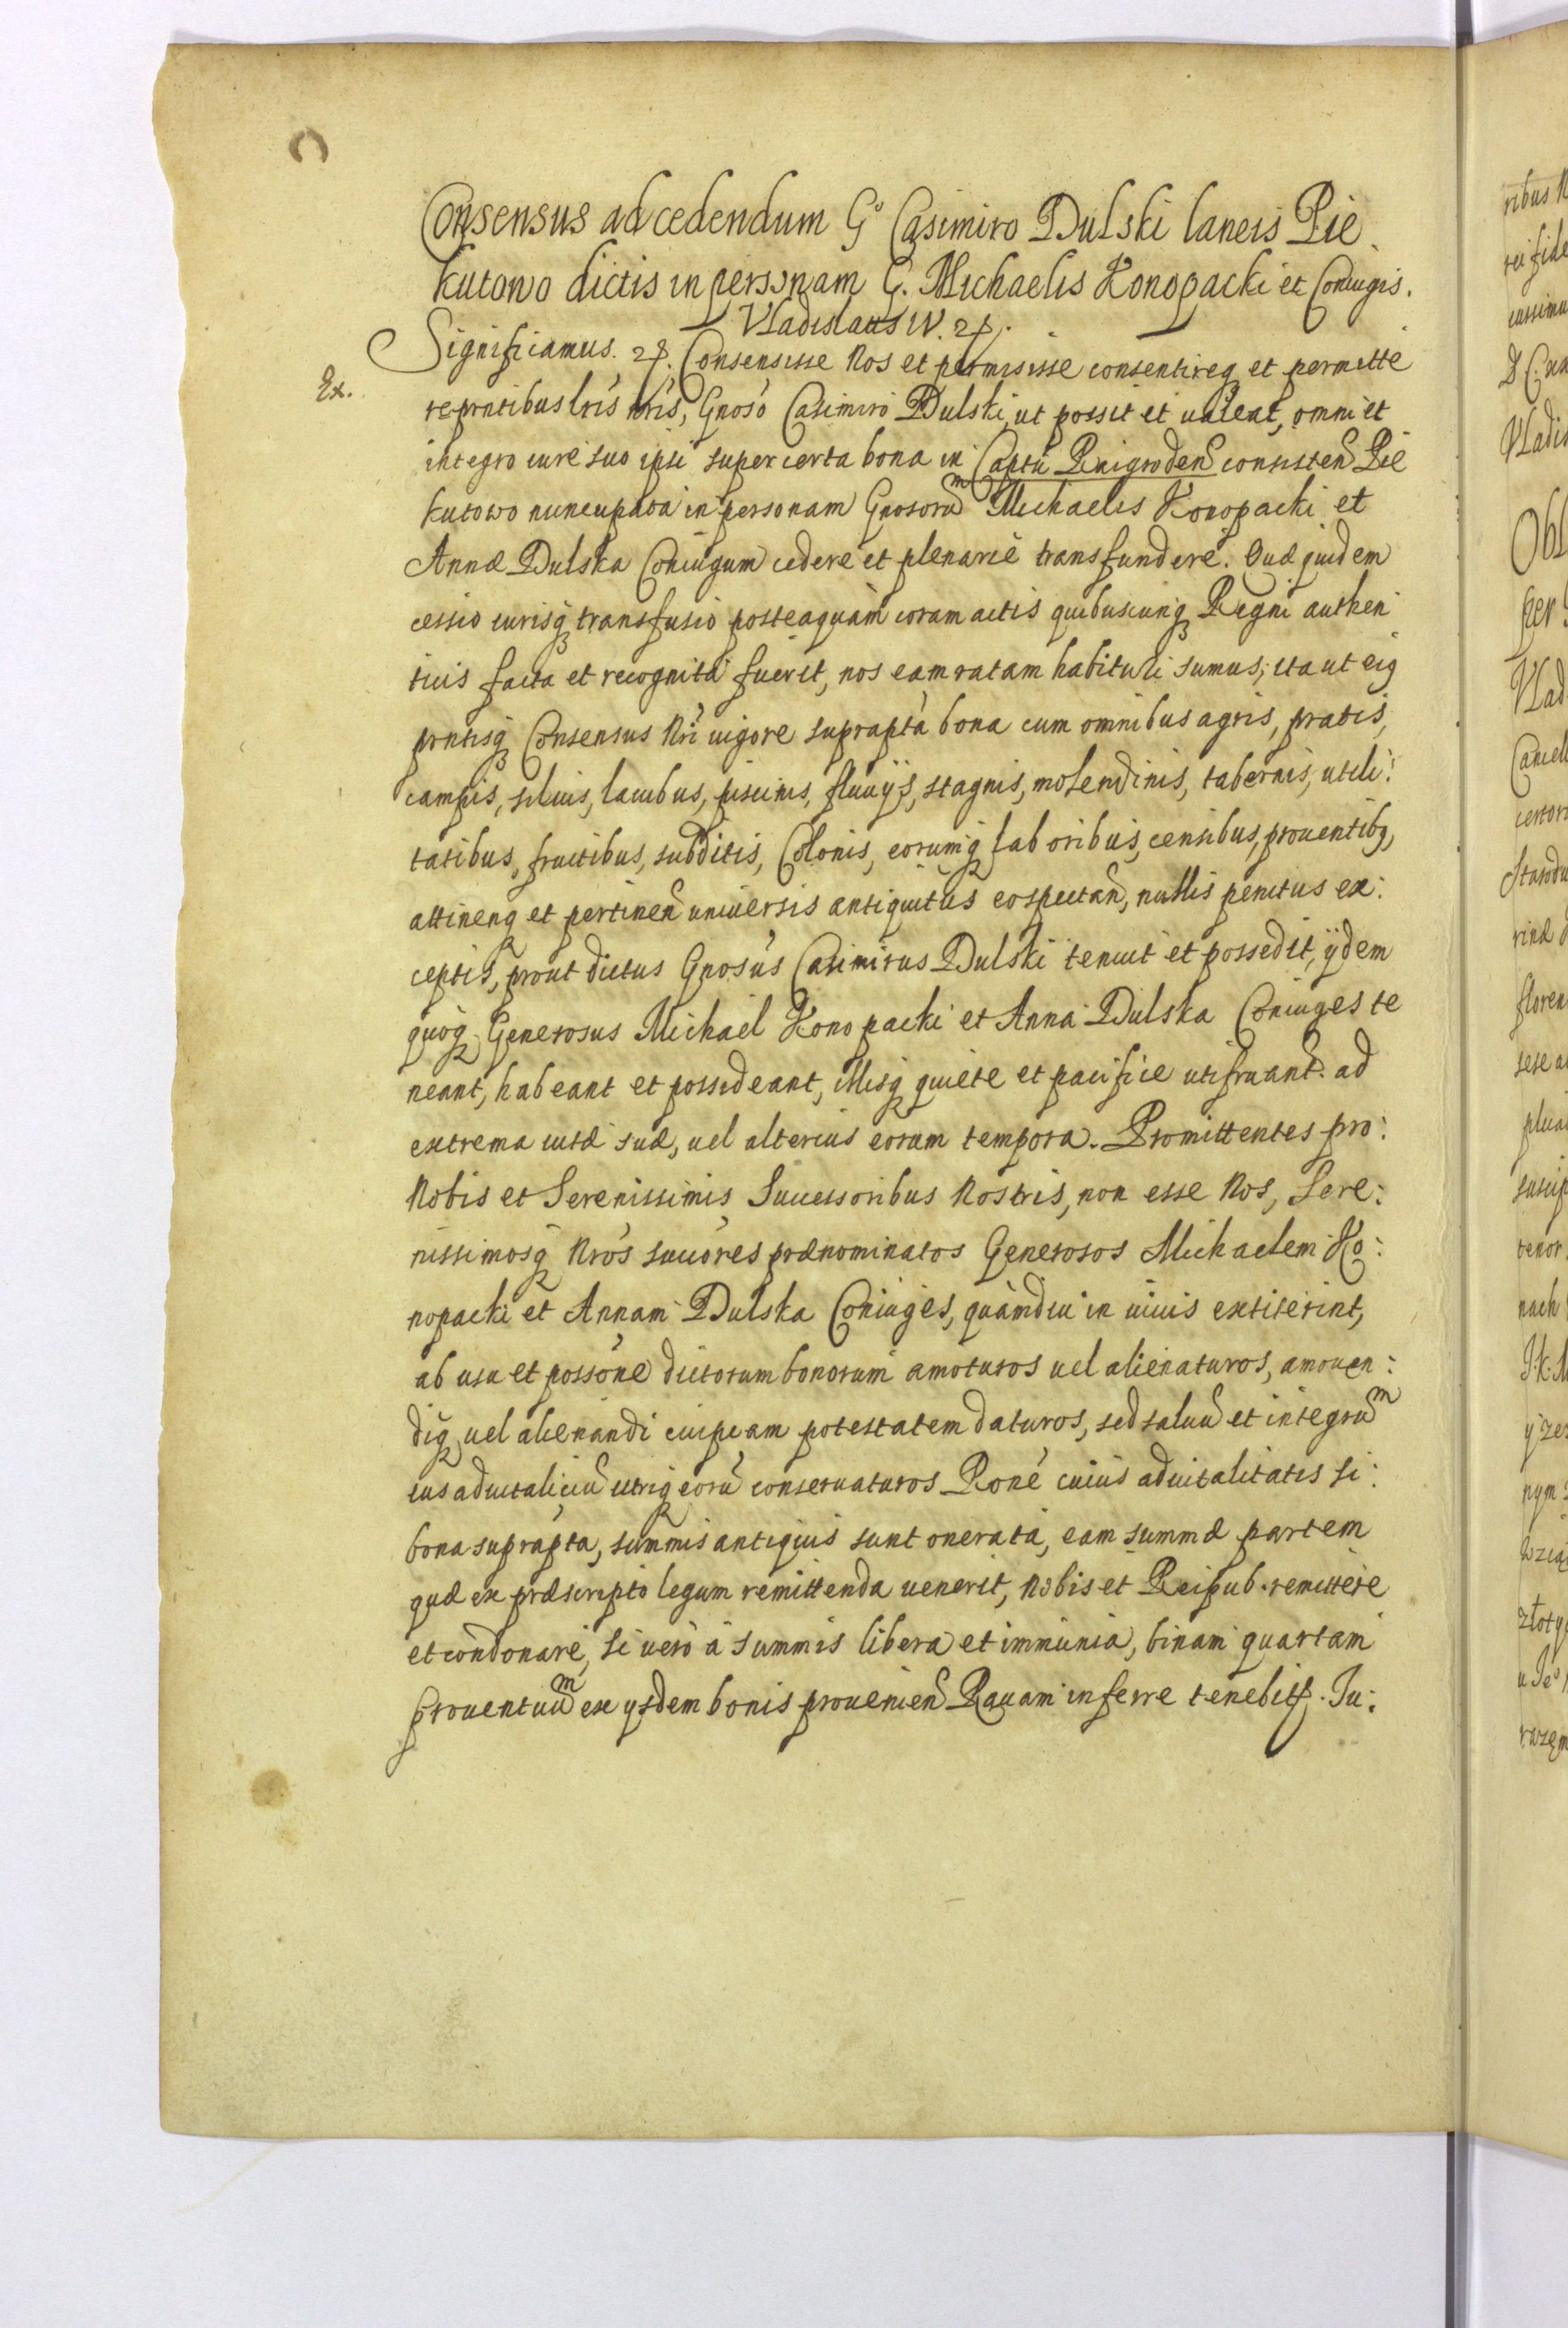 Consensus ad cedendum G° Casimiro Dulski laneis Pie
kutowo dictis in personam G. Michaelis Konopacki et Coniugis.
Vladislaus IV. etc.
Ex.
Significamus etc. Consensisse Nos et permisisse consentireq et permitte
re prntibus lris nris, Gnoso Casimiro Dulski, ut possit et ualeat, omni et
integro iure suo ipsi super certa bona in Captu Raigroden consisten Pie
kutowo nuncupata in personam Gnosorum Michaelis Konopacki et
Annæ Dulska Coniugum cedere et plenarie transfundere. Quæ quidem
cessio iurisq transfusio posteaquam coram actis quibuscunq Regni authen
ticis facta et recognita fuerit, nos eam ratam habituri sumus, ita ut eiq
prntisq Consensus Nri uigore suprapta bona cum omnibus agris, pratis,
campis, siluis, lacubus, piscinis, fluuijs, stagnis, molendinis, tabernis, utili:
tatibus, fructibus, subditis, Colonis, eorumq laboribus, censibus, prouentibq,
attinenq et pertinen uniuersis antiquitus eo spectan, nullis penitus ex:
ceptis, prout dictus Gnosus Casimirus Dulski tenuit et possedit, ijdem
quoq Generosus Michael Konopacki et Anna Dulska Coniuges te
neant, habeant et possideant, illisq quiete et pacifice utifruant. ad
extrema uitæ suæ, uel alterius eorum tempora. Promittentes pro:
Nobis et Serenissimis Successoribus Nostris, non esse Nos, Sere:
nissimosq Nros succores prænominatos Generosos Michaelem Ko:
nopacki et Annam Dulska Coniuges, quamdiu in uiuis extiterint,
ab usu et possone dictorum bonorum amoturos uel alienaturos, amouen:
diq uel alienandi cuipiam potestatem daturos, sed saluu et integrum
ius aduitaliciu utriq eoru conseruaturos Rone cuius aduitalitatis si:
bona suprapta, summis antiquis sunt onerata, eam summæ partem
quæ ex præscripto legum remittenda uenerit, Nobis et Reipub. remittere
et condonare, si uero a summis libera et immunia, binam quartam
prouentuum ex ijsdem bonis prouenien Rauam inferre tenebitr. Iu: